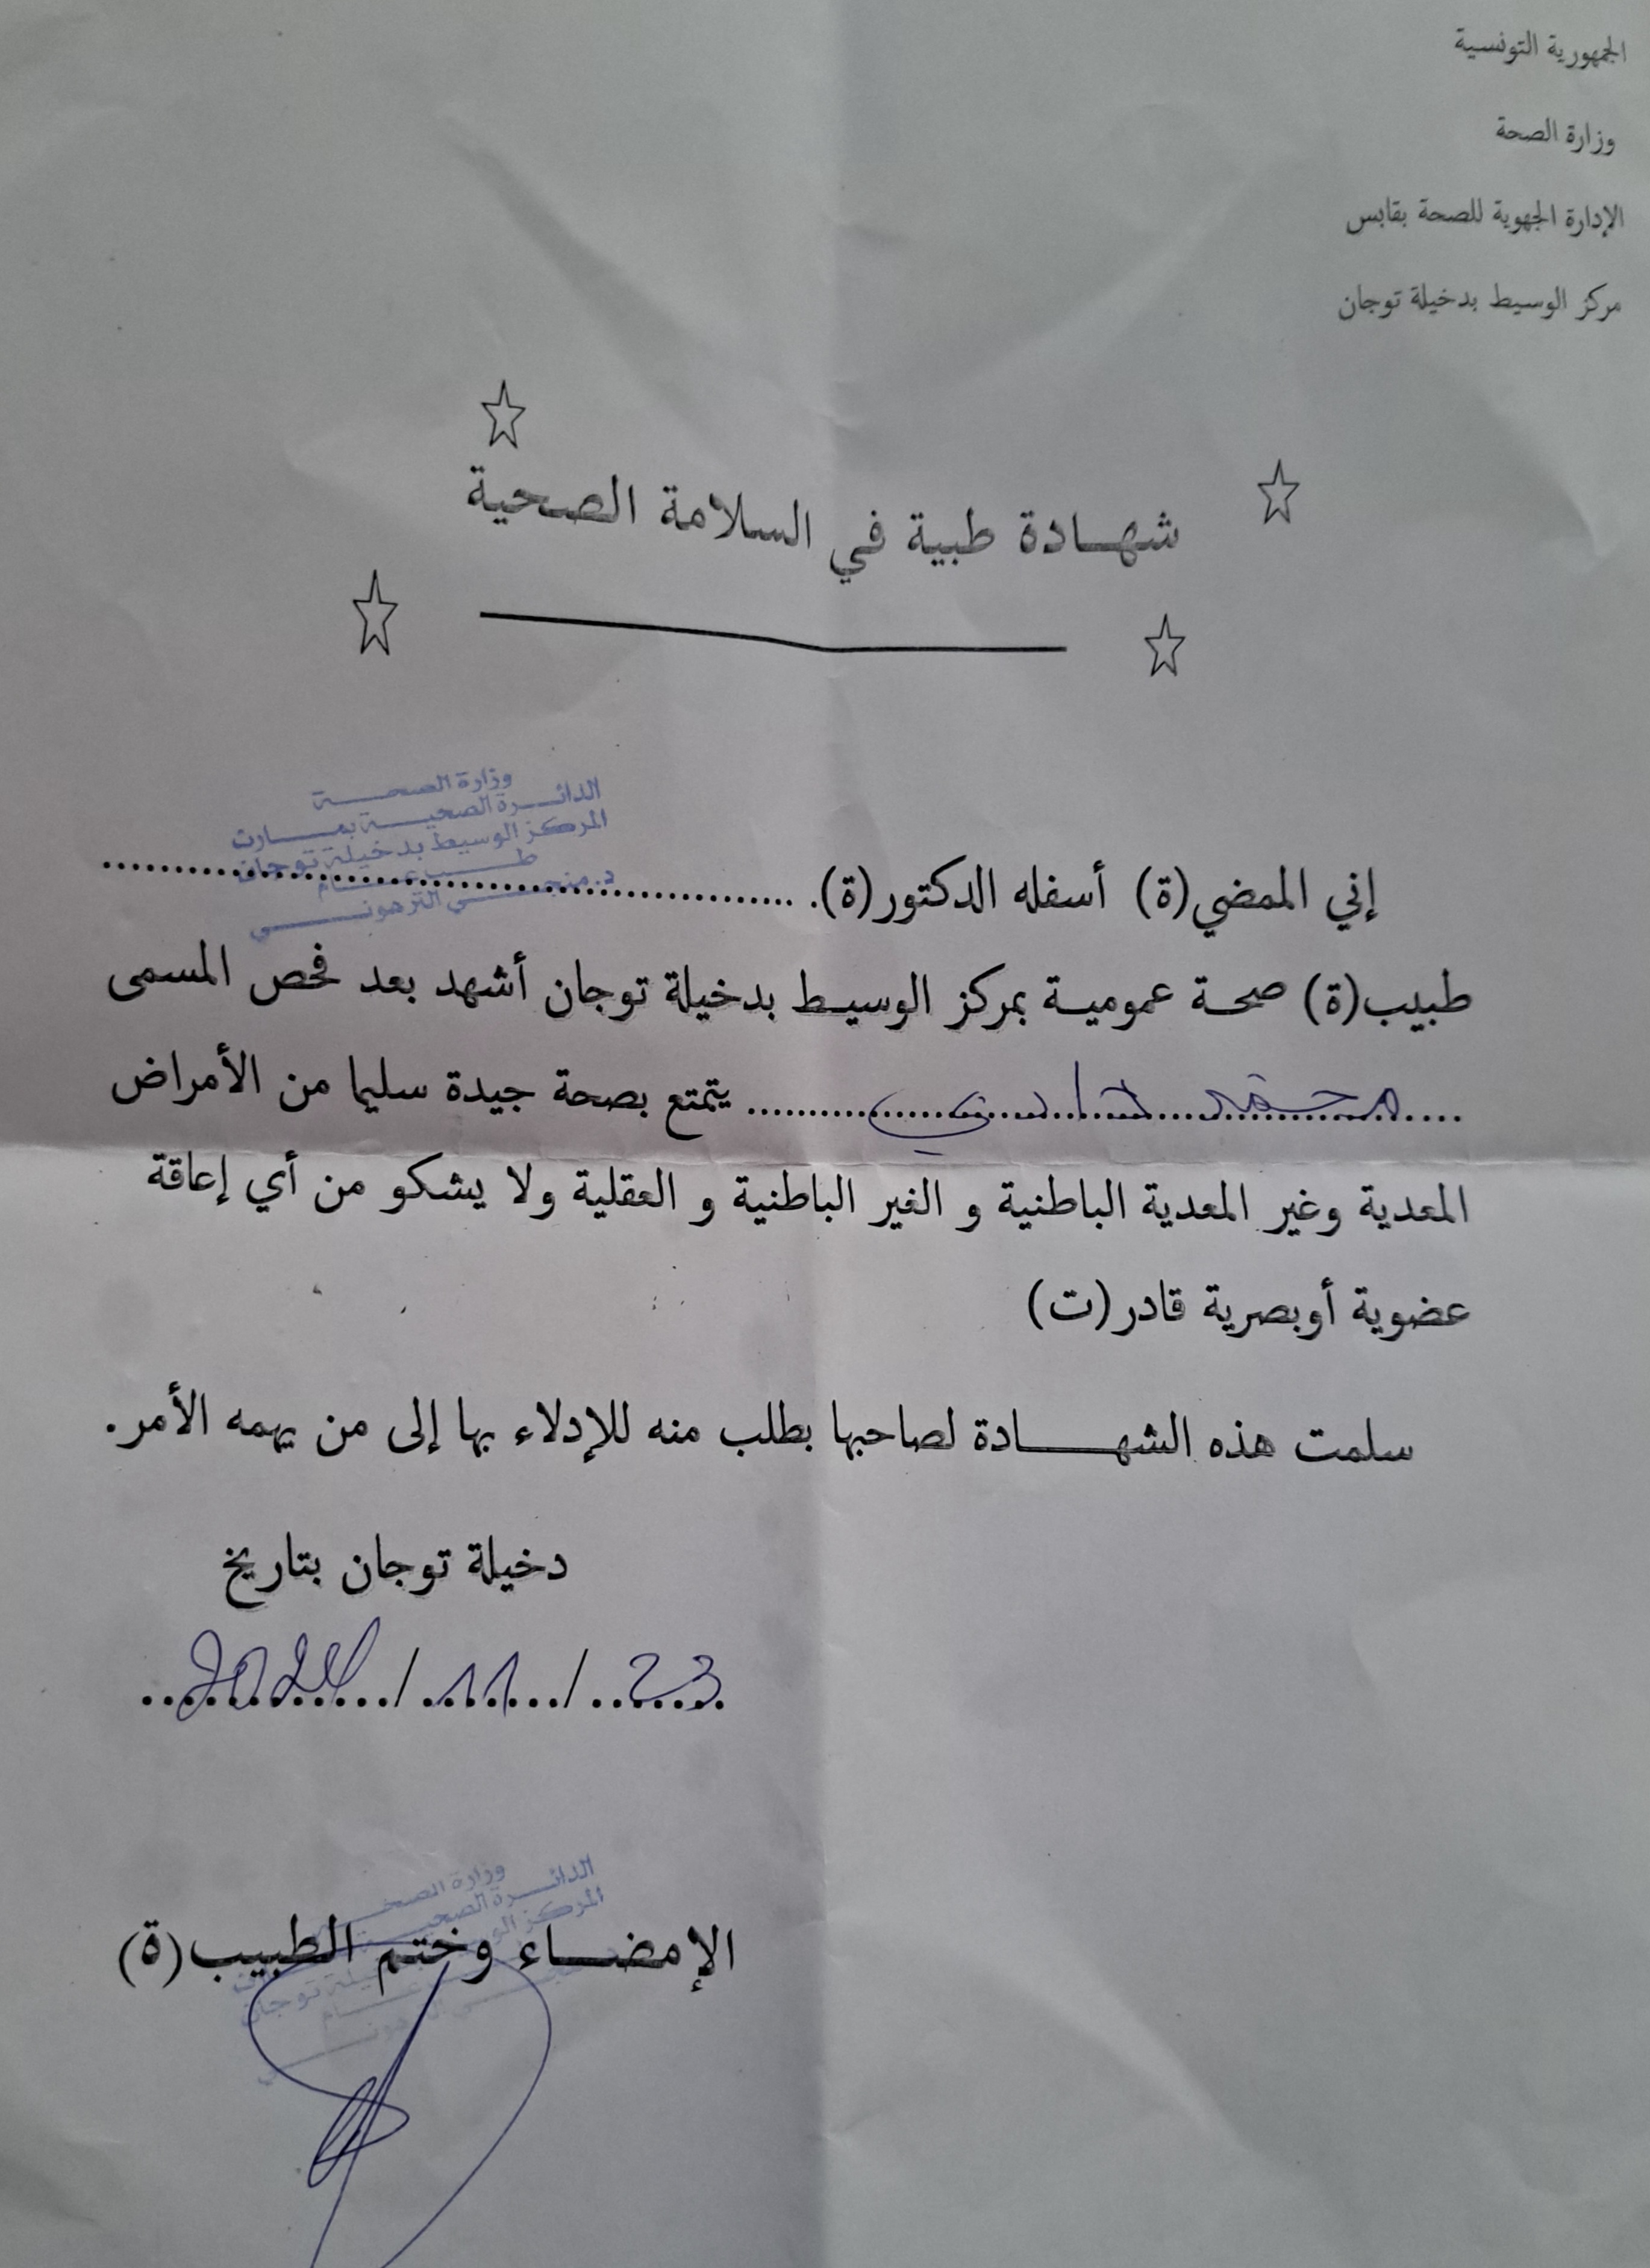 الجمهورية التونسية
وزارة الصحة
الإدارة الجهوية للصحة بقابس
مركز الوسيط بدخيلة توجان
شهــادة طبية في السلامة الصحية
وزارة الصحــــة
الدائـــرة الصحيـــة بمـــارث
المركز الوسيط بدخيلة توجان
طـــب عـــام
د. منجـــي الترهونـــي
إني الممضي(ة) أسفله الدكتور(ة). ........................................
طبيب(ة) صحة عمومية بمركز الوسيط بدخيلة توجان أشهد بعد فحص المسمى
.... محمد ........ يتمتع بصحة جيدة سليما من الأمراض
المعدية وغير المعدية الباطنية و الغير الباطنية و العقلية ولا يشكو من أي إعاقة
عضوية أوبصرية قادر(ت)
سلمت هذه الشهــــــادة لصاحبها بطلب منه للإدلاء بها إلى من يهمه الأمر.
دخيلة توجان بتاريخ
23 / 11 / 2024
وزارة الصحــــة
الدائـــرة الصحيـــة
المركز
توجان
الإمضــاء وختم الطبيب(ة)